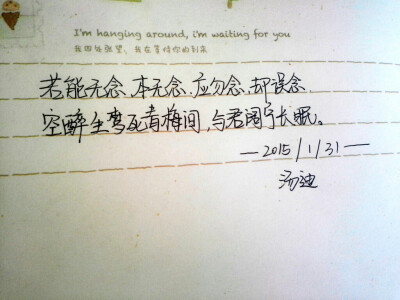 I'm hanging around, i'm waiting for you
我四处张望、我在等待你的到来
若能无念、本无念、应勿念、却误念、
空醉生鸾死青梅间,与君阖宁长眠。
—2015/1/31—
汤迪